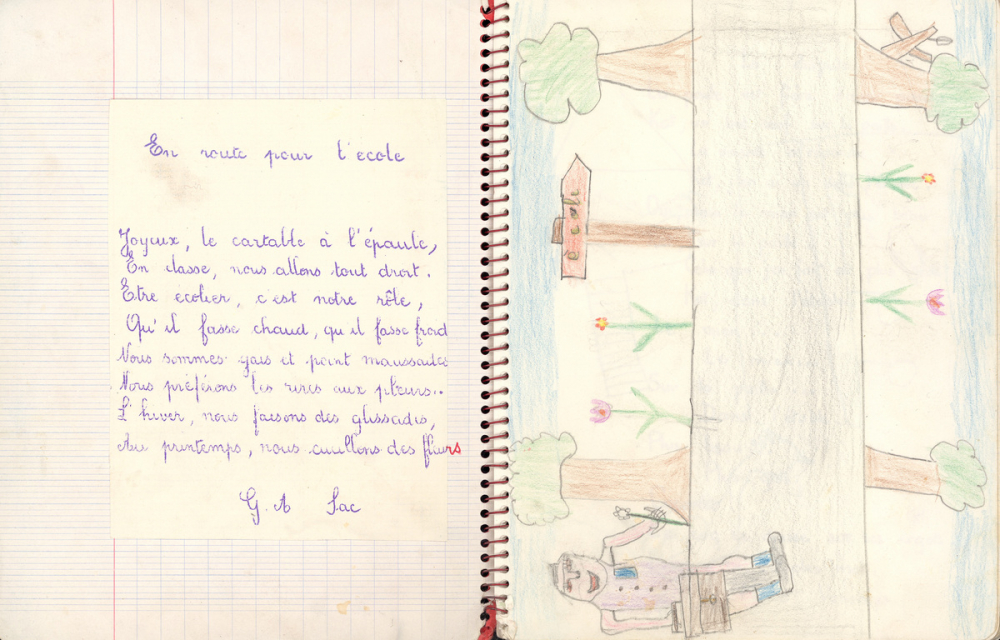 En route pour l'ecole
Joyeux, le cartable à l'épaule,
En classe, nous allons tout droit.
Etre ecolier, c'est notre rôle,
Qu'il fasse chaud, qu'il fasse froid
Nous sommes gais et point maussades
Nous préférons les rires aux pleurs..
L'hiver, nous faisons des glissades,
Au printemps, nous cueillons des fleurs
G. A Sac
école